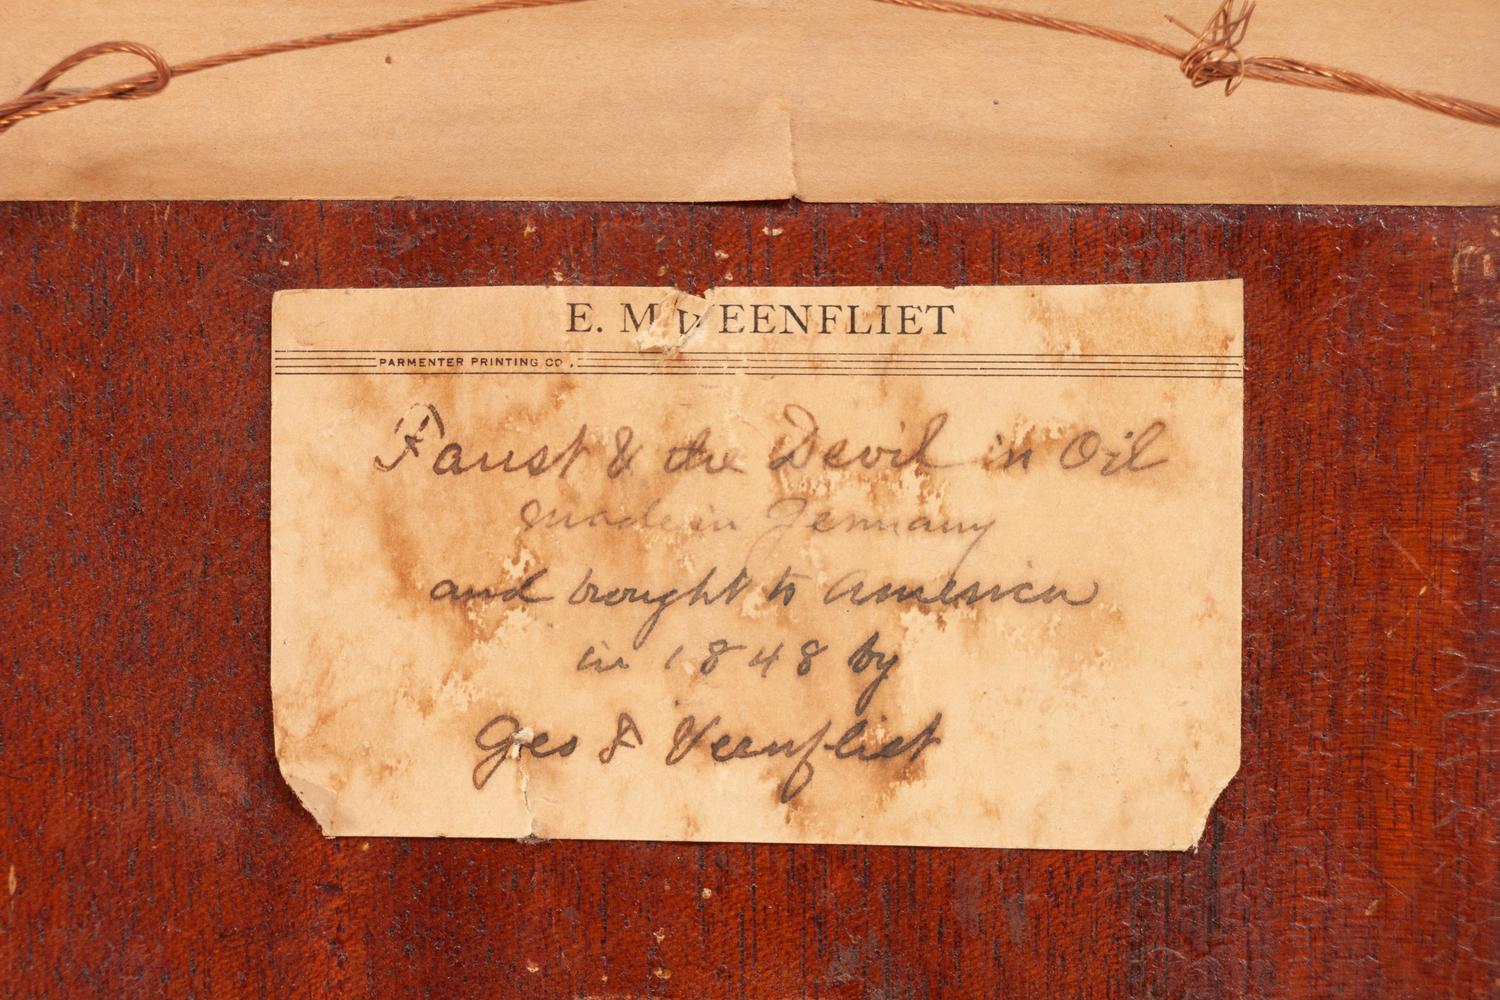 E. M. VEENFLIET
PARMENTER PRINTING CO.,
Faust & the Devil in Oil
made in Germany
and brought to America
in 1848 by
Geo F Veenfliet